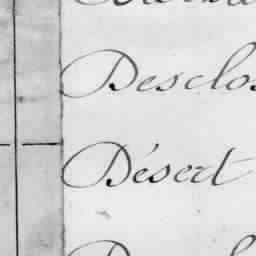 Desclos
Désert